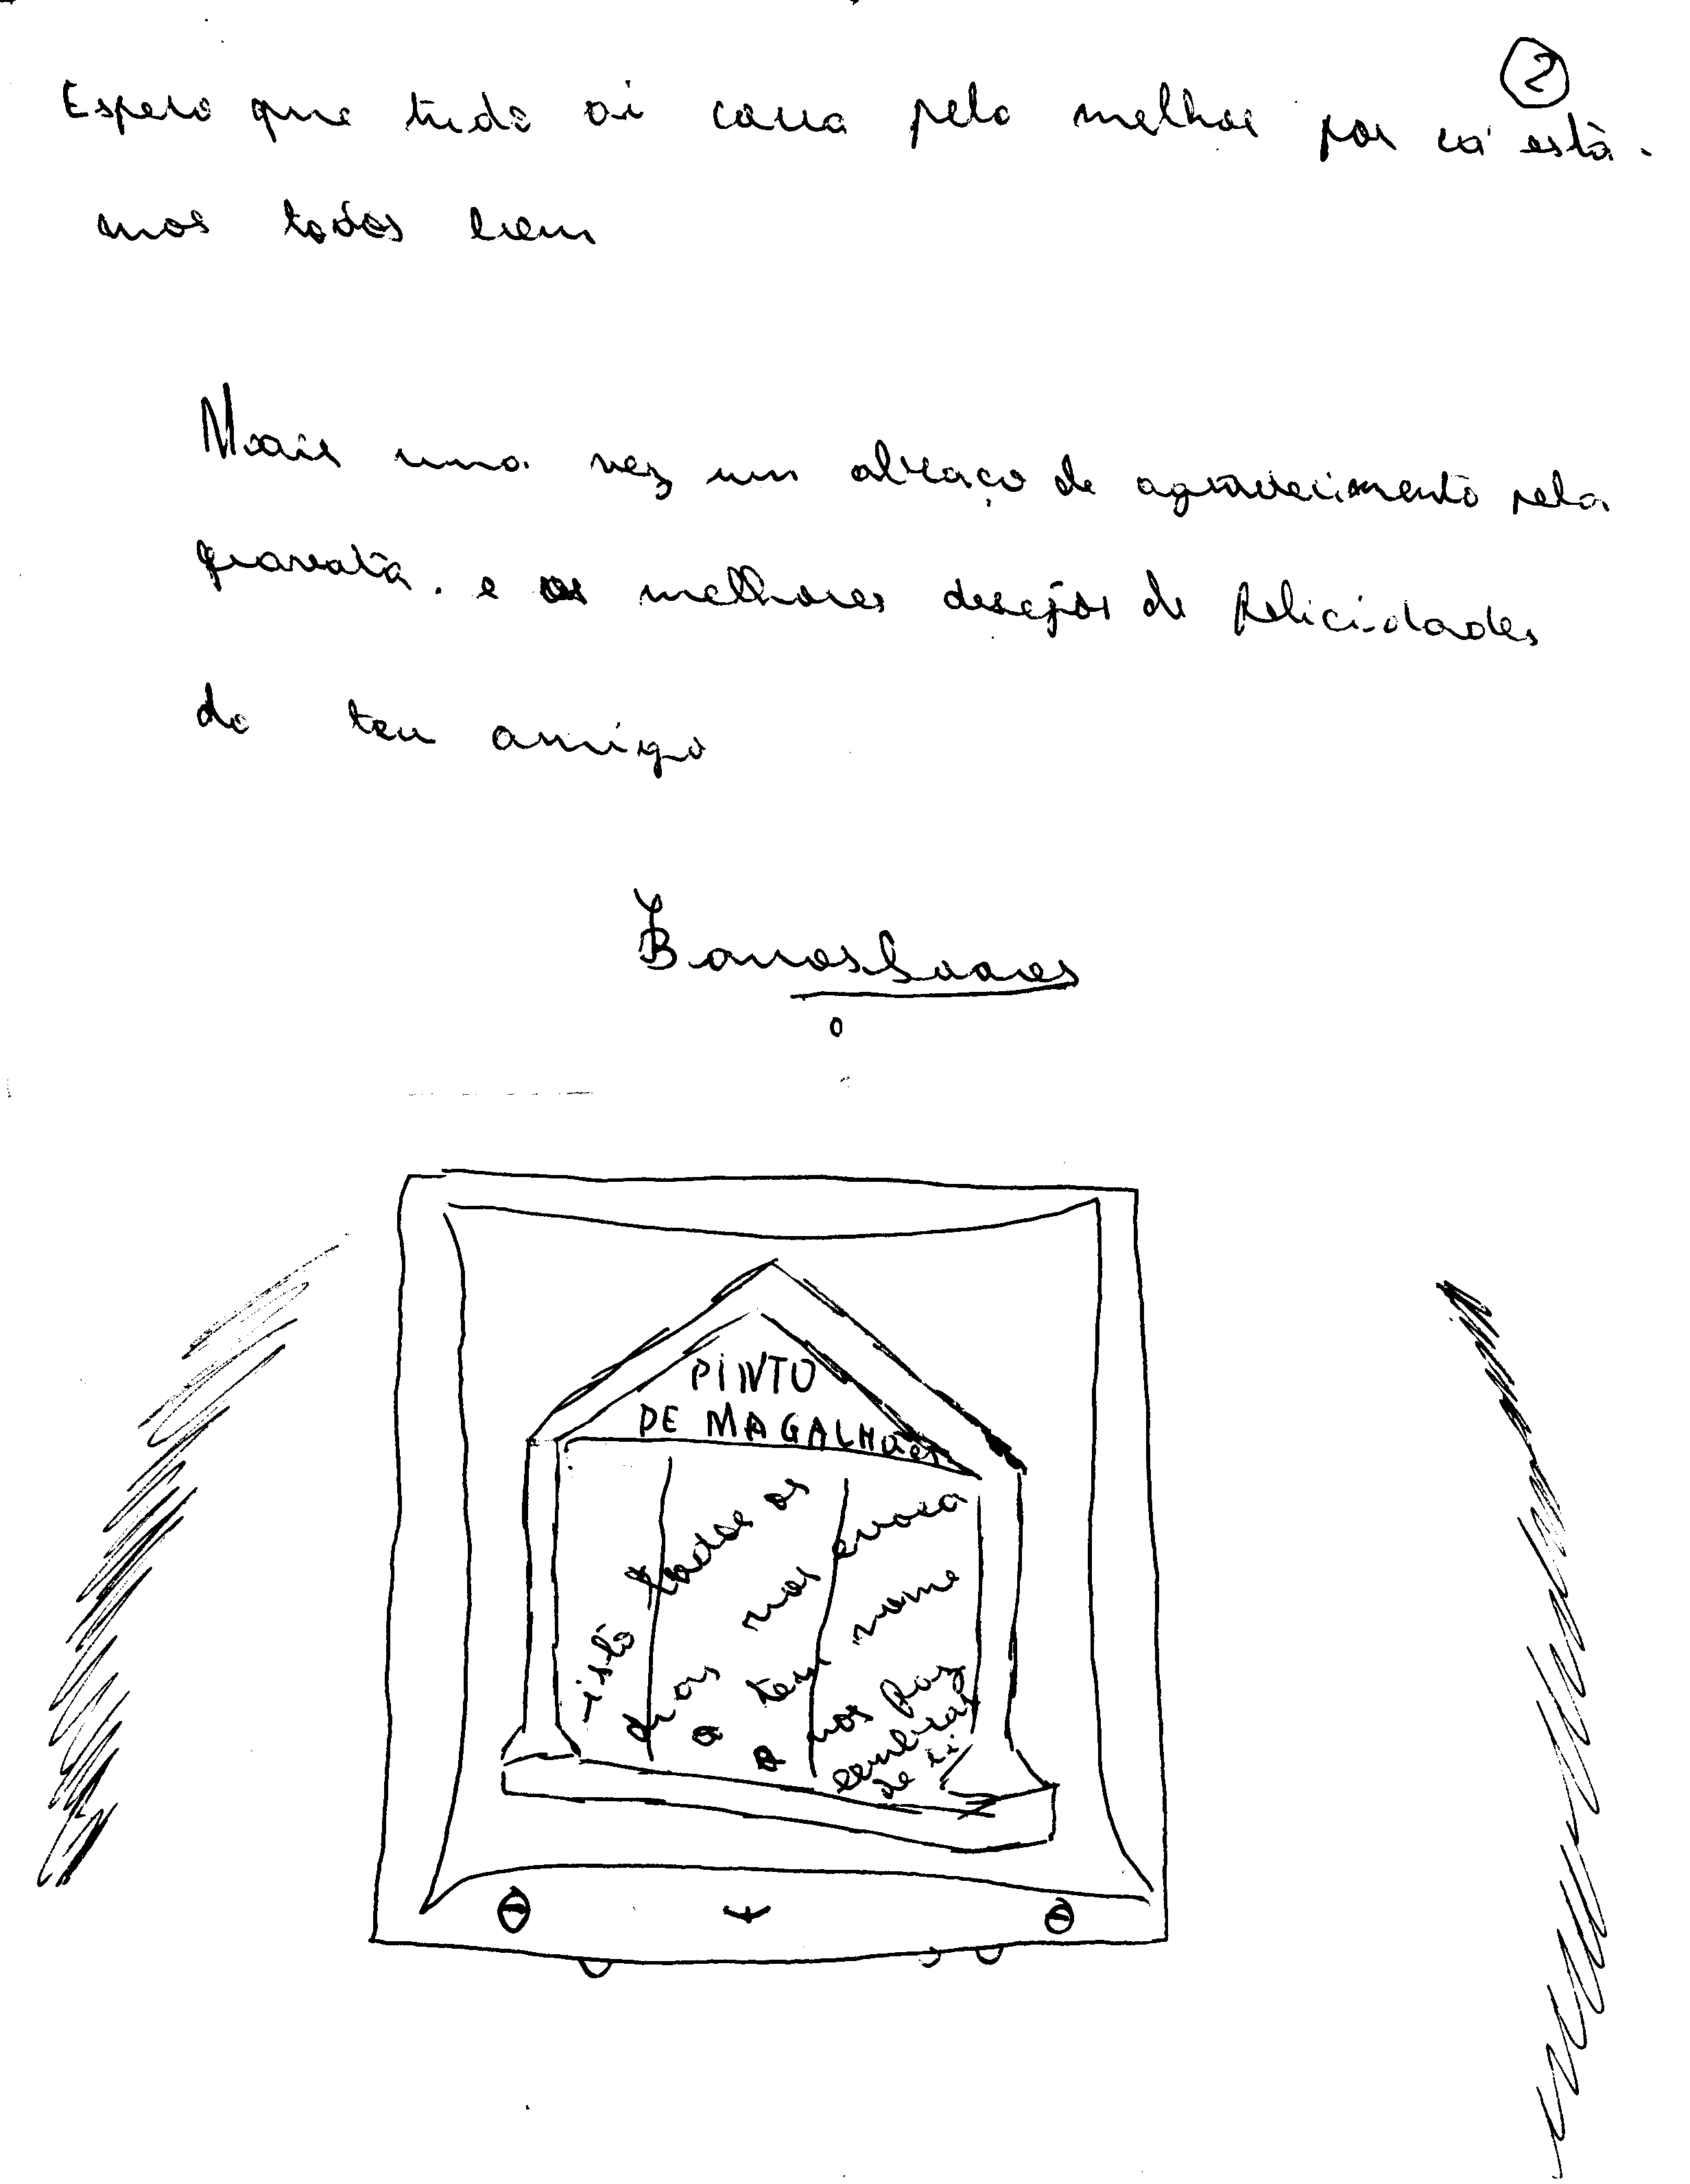 2
Espero que tudo ai corra pelo melhor por cá está-
mos todos bem
Mais uma vez um abraço de agradecimento pela
gravata. e os melhores desejos de felicidades
do teu amigo
Barros Soares
PINTO
DE MAGALHães
isto todos os
dias nos evoca
a teu nome
e nos faz
lembrar
de ti